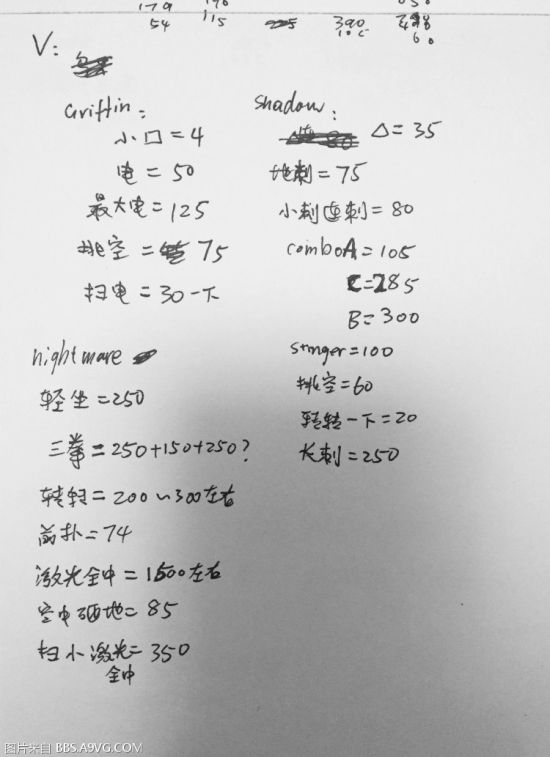 54
115
390
60
V:
Griffin:
小口=4
电=50
最大电=125
挑空=75
扫电=30一下
Shadow:
△=35
地刺=75
小刺连刺=80
comboA=105
C=285
B=300
stinger=100
挑空=60
转转一下=20
长刺=250
nightmare
轻坐=250
三拳=250+150+250?
转转=200~300左右
前扑=74
激光全中=1500左右
空中砸地=85
扫小激光=350
全中
图片来自 BBS.A9VG.COM